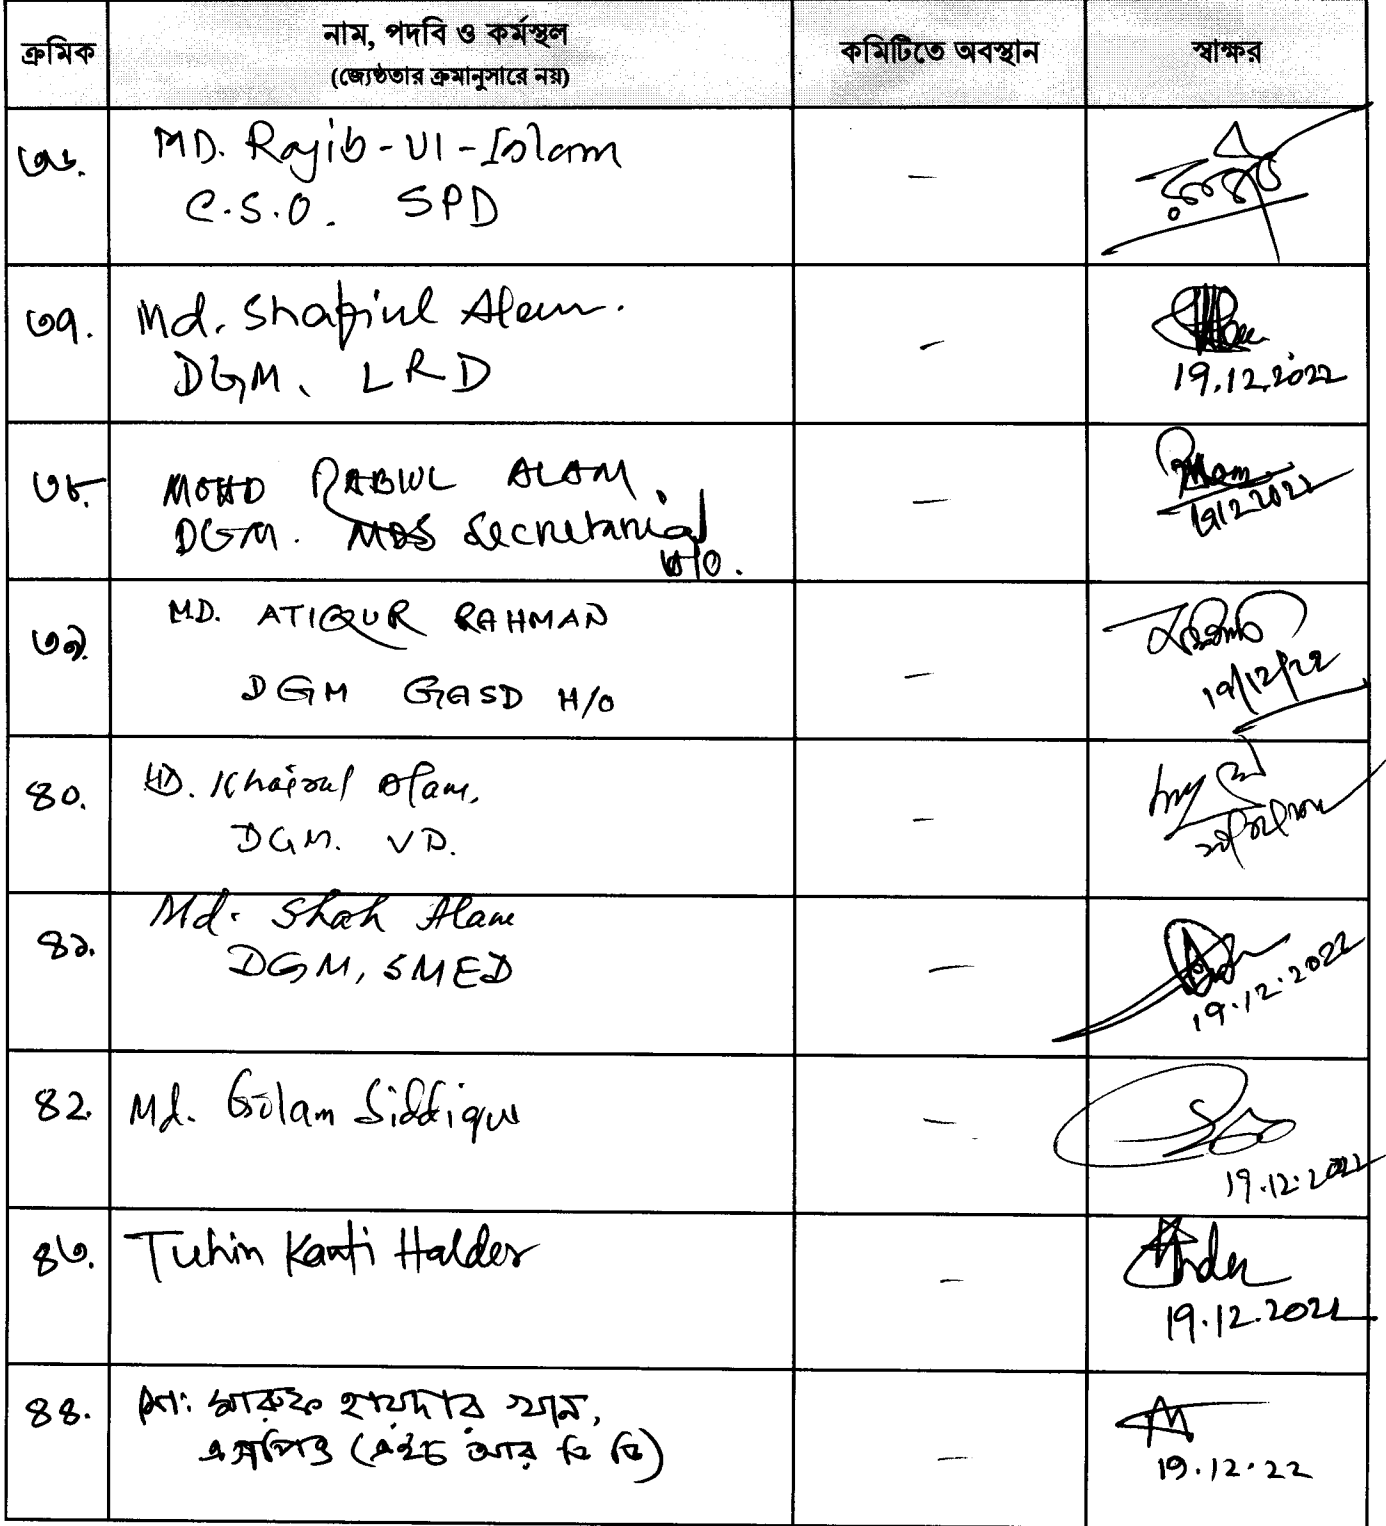 ক্রমিক
নাম, পদবি ও কর্মস্থল
(জ্যেষ্ঠতার ক্রমানুসারে নয়)
কমিটিতে অবস্থান
স্বাক্ষর
৩৬.
MD. Rajib-Ul-Islam
C.S.O. SPD
—
৩৭.
Md. Shafiul Alam.
DGM, LRD
—
19.12.2022
৩৮.
MOHD RABIUL ALAM.
DGM. MDS Secretariat
H/O.
—
19/12/2022
৩৯.
MD. ATIQUR RAHMAN
DGM GASD H/O
—
19/12/22
৪০.
MD. Khairul Alam,
DGM. VD.
—
৪১.
Md. Shah Alam
DGM, SMED
—
19.12.2022
৪২.
Md. Golam Siddique
—
19.12.2022
৪৩.
Tuhin Kanti Halder
—
19.12.2022
৪৪.
মো: মারুফ হায়দার খান,
এসপিও (এইচ আর ডি ডি)
—
19.12.22